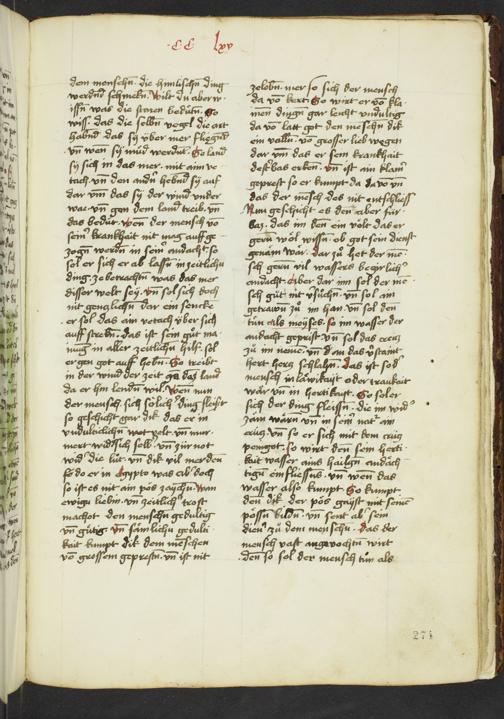 CC lxv
dem menschn die himlischn ding
werdnd schmekn. Wilt du aber w
issn was die staren bedütn. So
wiss das die selbn vogel die art
habnd das sy über mer fliegnd
vn wen sy müd werdnt. So land
sy sich in das mer. mit aim ve
tach. vn den andn hebnd sy auf
dar vm das sy der wind
vn gen dem land treib. vn
das bedüt. Wen der mensch vo
sein krankhait nit mag auff ge
zogn werdn in sein andacht so
sol er sich er als lassn in zeitlichn
ding. ze betrachtn was das mer
diser welt sey. vn sol sich doch
nit genczlichn dar ein senckn
er sol das ain vetach über sich
auff strekn. das ist sein güt ma
inung in aller zeitlichn hilf. sol
er gen got auff hebn. So treibt
in der wind der zeit zu das land
da er hin lendn wil. Wen nun
der mensch sich sölich ding fleist
so geschicht gar dik das er in
vngedultichn wort velt. vn mur
mert widsich selb. vn zürnot
wid die lüt. vn dik vil
er do er in Egypto was als doch
so ist es nit ain pös zaychn. Wan
ewigs liebn. vn zeitlich trost
machot den menschn gedultig
vn gütig. vn sämlichn gedult
kait kumpt dik dem menschen
vo grossem geprestn. vn ist nit
zelobn. wer so sich der mensch
da vo kert. So wirt er vo kla
inen dingn gar leicht vndultig
da vo latt got den menschn dik
ein valln. vo grosser lieb wegen
dar vm das er sein krankhait
dest bas erken. vn ist ain klain
geprest so er kumpt da da vo vn
das der mensch des nit entschliess
Nun geschicht es den aber für
bas. das im ken ein volk das er
gern wöl wissn. ob got sein dienst
genäm wär. dar zu het der me
sch gern vil wassers begirlich
andacht. Aber dar im sol der me
sch güt mit vsüchn. vn sol ain
getrawn zu im han. vn sol den
tün als moyses. so im wasser der
andacht geprist. vn sol das creucz
zu im neme. vn
hert herz schlahn. Das ist so d
mensch in lawikait oder traukait
wär vn in hertikait. So sol er
sich der ding fleissn. die im wid
zäm wärn. vn in sein nat am
creucz. vn so er sich mit dem crücz
peingot. So wirt den sein herti
kait wasser aus hailgn andäch
tign einfliessns. vn wen das
wasser also kumpt. So kumpt
den dik der pös gaist mit seine
pössn bildn. vn sent al sein
diener zu dem menschn. das der
mensch vast angevochtn wirt
den so sol der mensch tün als
274